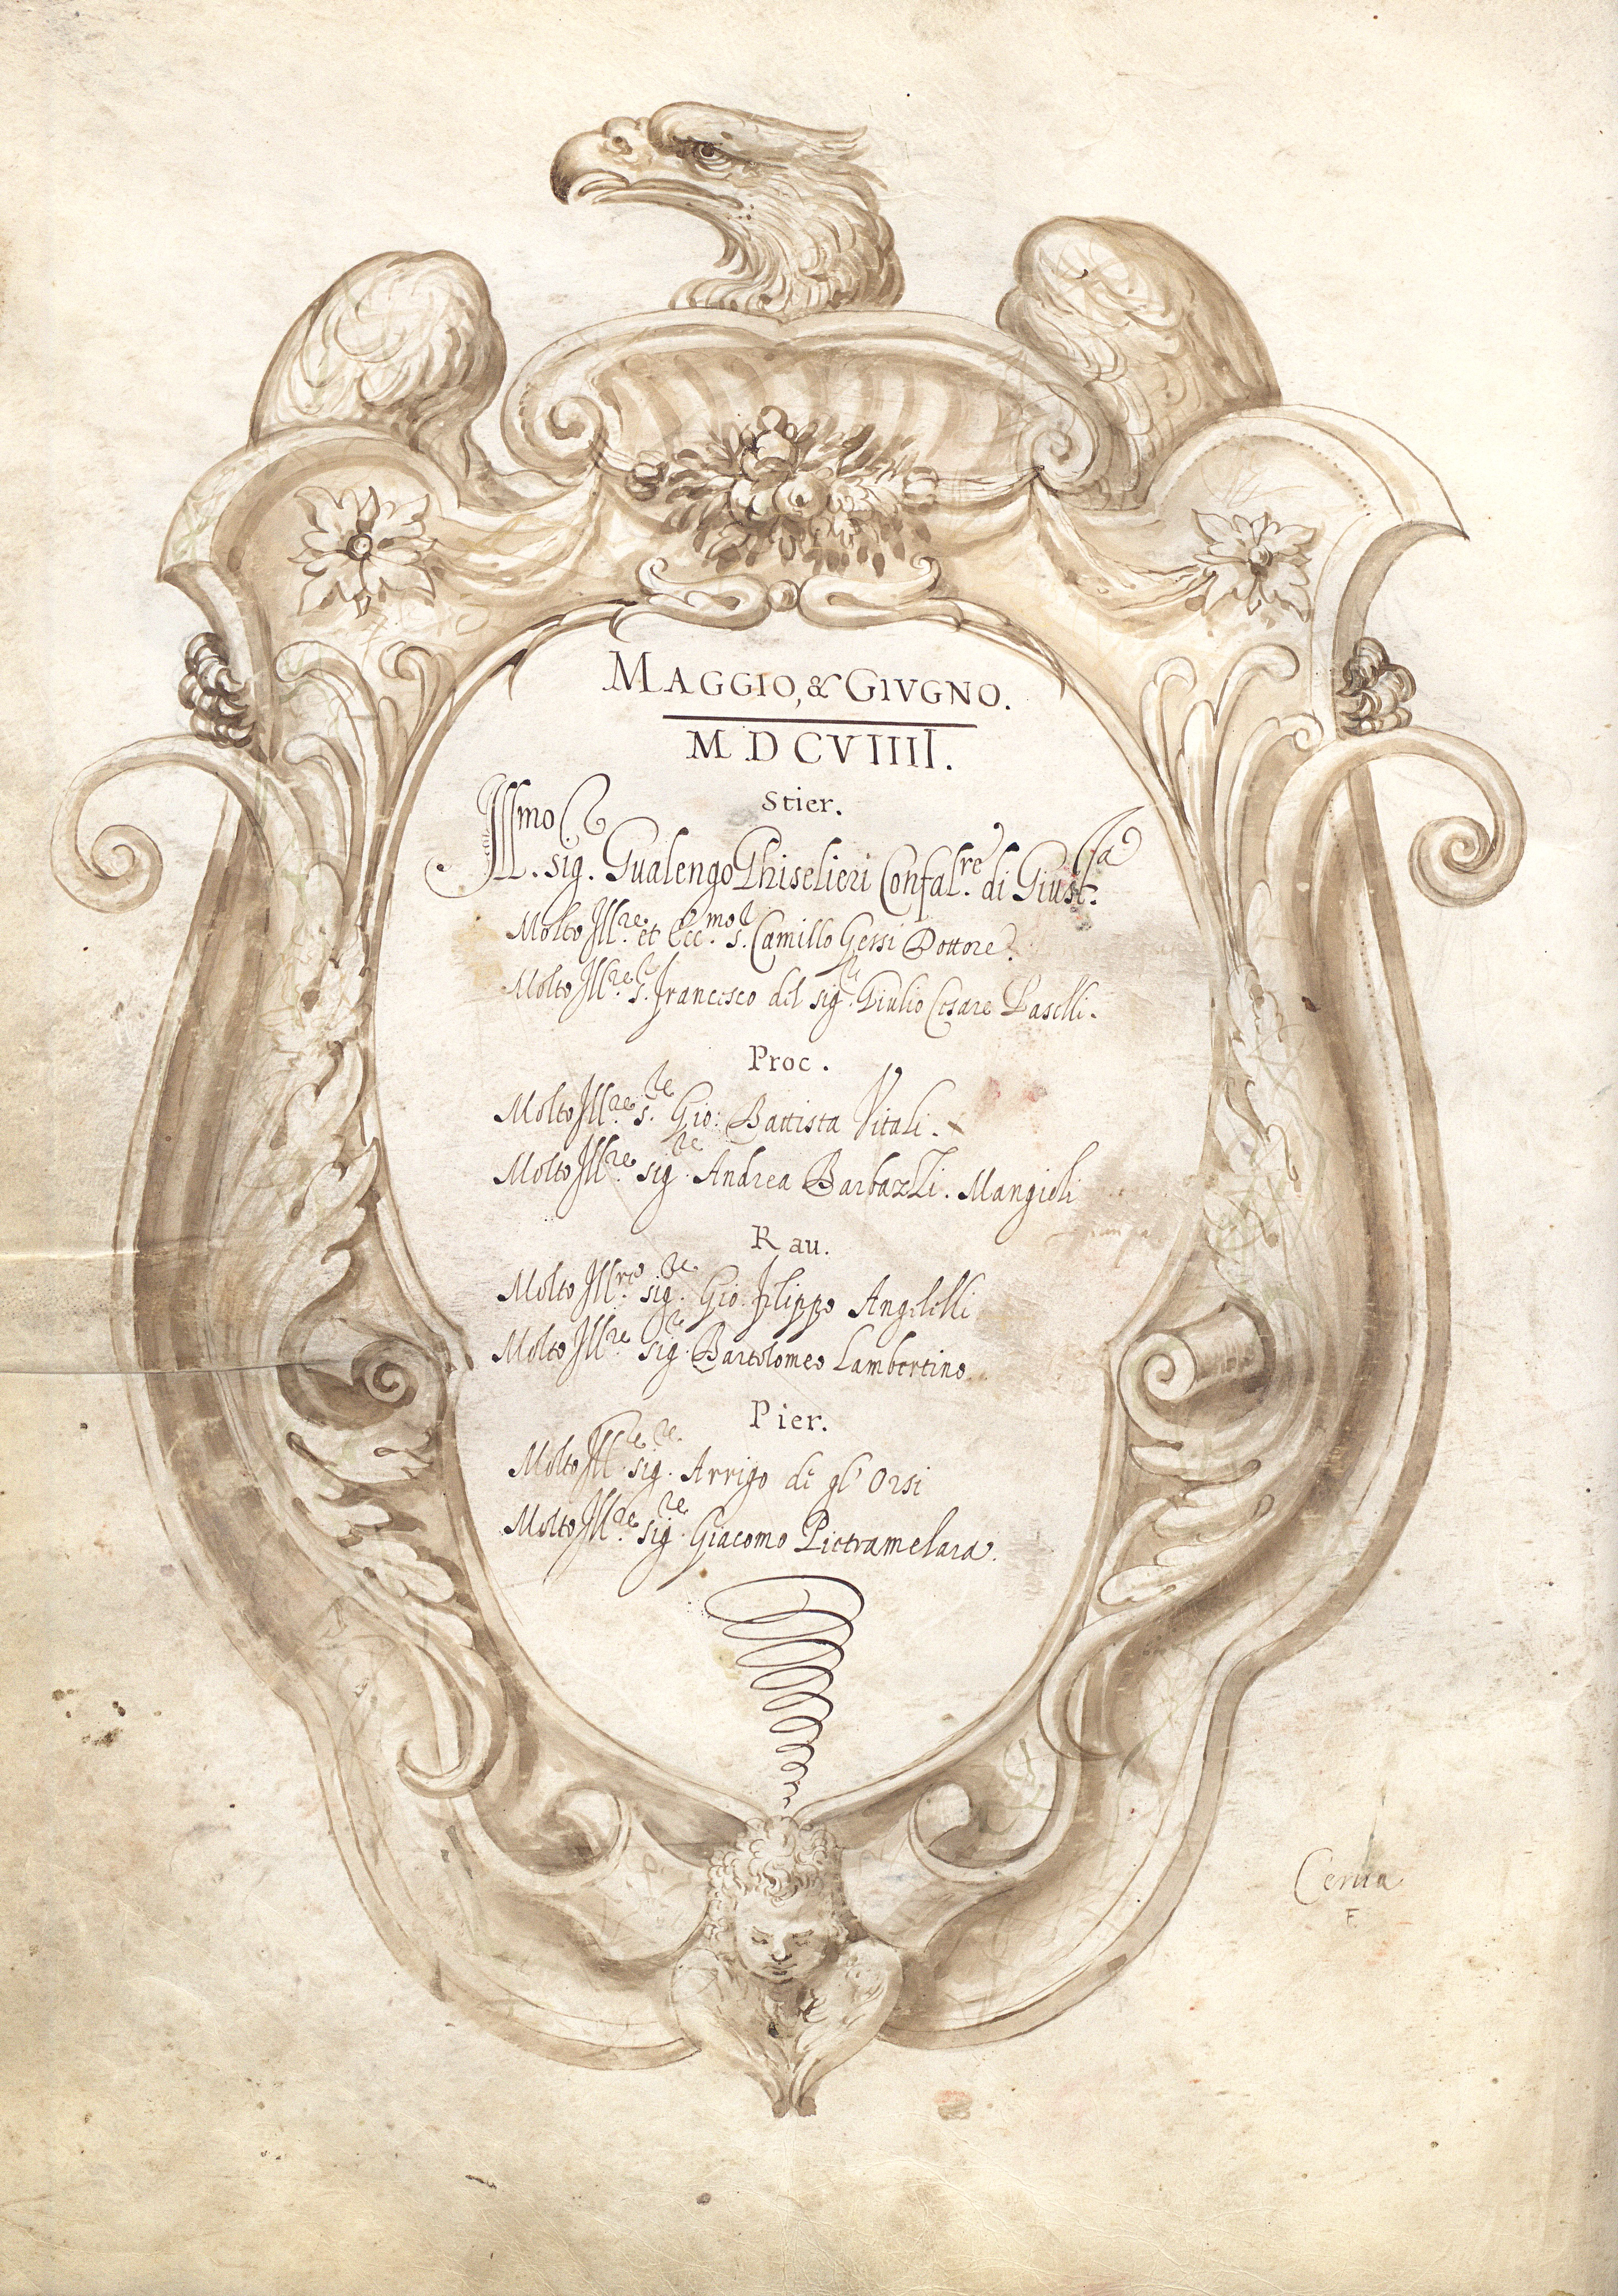 MAGGIO, & GIVGNO.
MDCVIIII.
Stier.
Ill.mo sig. Gualengo Ghiselieri Confal.re di Giust.a
Molto Ill.re et Ecc.mo s. Camillo Gessi Dottore.
Molto Ill.re s. Francesco del sig. Giulio Cesare Baselli.
Proc.
Molto Ill.re s. Gio: Battista Vitali.
Molto Ill.re sig.re Andrea Barbazzi. Mangioli
Rau.
Molto Ill.re sig.re Gio. Filippo Angelelli
Molto Ill.re sig.re Bartolomeo Lambertino
Pier.
Molto Ill.re sig.re Arrigo de gl' Orsi
Molto Ill.re sig.re Giacomo Pietramelara.
Cerua
F.